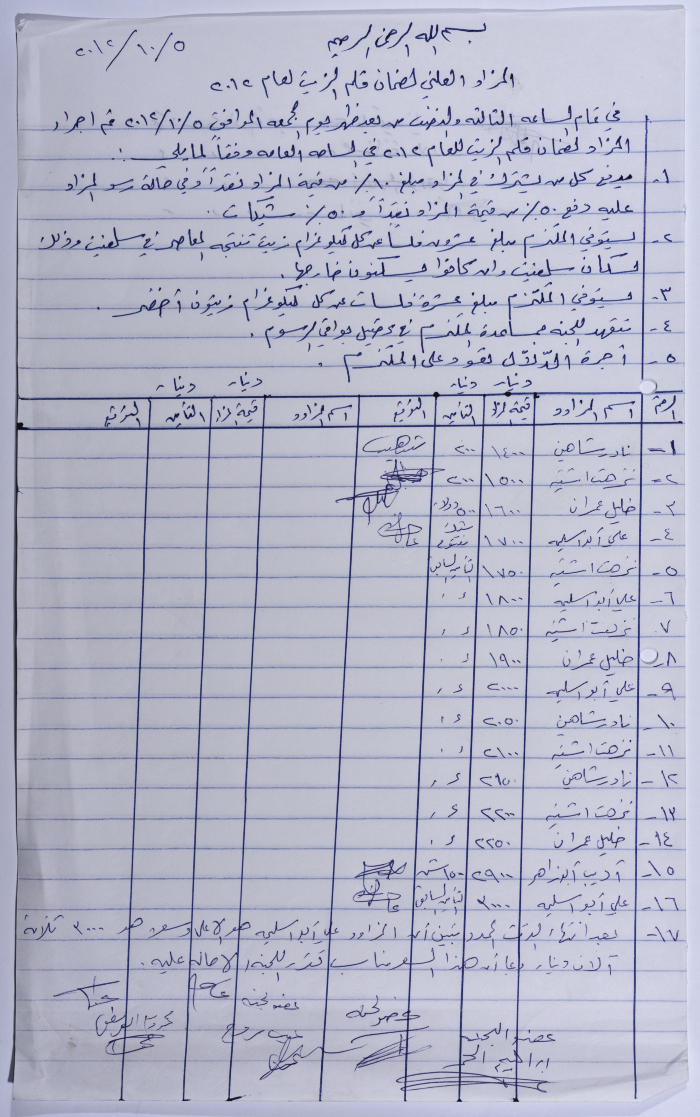 بسم الله الرحمن الرحيم
٢٠١٢/١٠/٥
المزاد العلني لضمان قلم الزيت لعام ٢٠١٢
في تمام الساعه الثالثه والنصف من بعد ظهر يوم الجمعه الموافق ٢٠١٢/١٠/٥ تم اجراء
المزاد لضمان قلم الزيت للعام ٢٠١٢ في الساحه العامه وفقاً لما يلي :
١- يدفع كل من يشترك في المزاد مبلغ ١٠٪ من قيمة المزاد نقداً وفي حالة رسو المزاد
عليه دفع ٥٠٪ من قيمة المزاد نقداً و ٥٠٪ شيكات .
٢- يستوفي الملتزم مبلغ عشرون فلساً عن كل كيلو غرام زيت تنتجه المعاصر في سلفيت وذلك
لسكان سلفيت وان كانوا يسكنون خارجها .
٣- يستوفي الملتزم مبلغ عشرة فلسات عن كل كيلو غرام زيتون أخضر .
٤- تتعهد اللجنه بمساعدة الملتزم في تحصيل بواقي الرسوم .
٥- أجرة الدّلاّل تعود على الملتزم .
دينار دينار دينار دينار
الرقم اسم المزاود قيمة المزاد التأمين التوقيع اسم المزاود قيمة المزاد التأمين التوقيع
١- نادر شاهين ١٤٠٠ ٢٠٠
٢- نزهت اشتيه ١٥٠٠ ٢٠٠
٣- خليل عمران ١٦٠٠ ٥٠٠ دولار
٤- علي أبو اسليمه ١٧٠٠ شيك مفتوح
٥- نزهت اشتيه ١٧٥٠ التأمين السابق
٦- علي أبو اسليمه ١٨٠٠ = =
٧- نزهت اشتيه ١٨٥٠ = =
٨- خليل عمران ١٩٠٠ = =
٩- علي أبو اسليمه ٢٠٠٠ = =
١٠- نادر شاهين ٢٠٥٠ = =
١١- نزهت اشتيه ٢١٠٠ = =
١٢- نادر شاهين ٢١٥٠ = =
١٣- نزهت اشتيه ٢٢٠٠ = =
١٤- خليل عمران ٢٢٥٠ = =
١٥- أديب أبو زاهر ٢٩٠٠
١٦- علي أبو اسليمه ٣٠٠٠ التأمين السابق
١٧- بعد انتهاء الوقت المحدد تبين أن المزاود علي أبو اسليمه هو الاعلى وسعره هو ٣٠٠٠ ثلاثة
آلاف دينار وبما أن هذا السعر مناسب تقرر اللجنه الاحاله عليه .
عضو اللجنه عضو لجنه عضو لجنه
ابراهيم